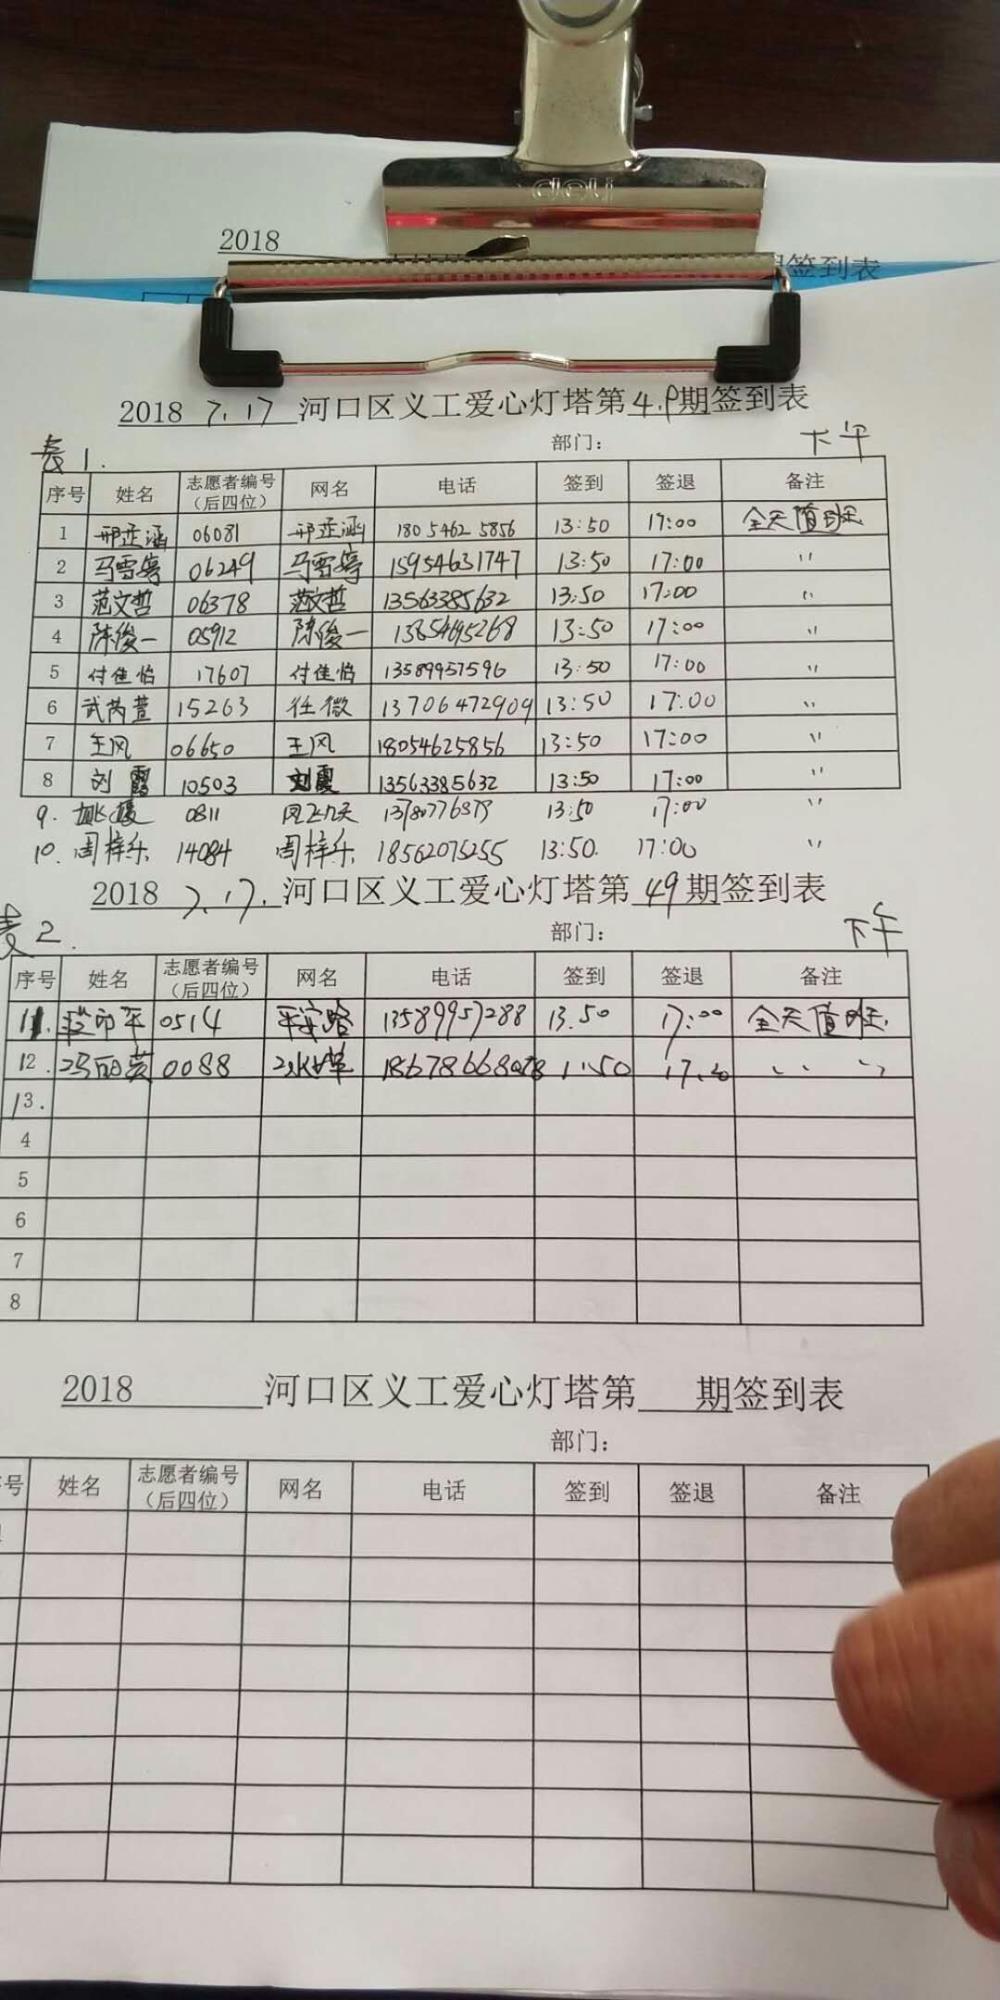 deli
2018
签到表
2018 7.17 河口区义工爱心灯塔第4.9期签到表
表1. 部门: 下午
序号 姓名 志愿者编号（后四位） 网名 电话 签到 签退 备注
1 邢芷涵 06081 邢芷涵 180 5462 5856 13:50 17:00 全天值班
2 马雪婷 06249 马雪婷 15954631747 13:50 17:00 〃
3 范文哲 06378 范文哲 13563385632 13:50 17:00 〃
4 陈俊一 05912 陈俊一 13:50 17:00 〃
5 付佳怡 17607 付佳怡 13589957596 13:50 17:00 〃
6 武芮萱 15263 任微 13706472909 13:50 17:00 〃
7 王风 06650 王风 18054625856 13:50 17:00 〃
8 刘霞 10503 刘霞 13563385632 13:50 17:00 〃
9. 0811 13:50 17:00 〃
10. 周梓乐 14084 周梓乐 18562075255 13:50. 17:00 〃
2018 7.17. 河口区义工爱心灯塔第49期签到表
表2. 部门: 下午
序号 姓名 志愿者编号（后四位） 网名 电话 签到 签退 备注
11. 0514 平安路 13589957288 13.50 17:00 全天值班.
12. 冯丽英 0088 17.00 〃 〃
13.
4
5
6
7
8
2018 河口区义工爱心灯塔第 期签到表
部门:
号 姓名 志愿者编号（后四位） 网名 电话 签到 签退 备注